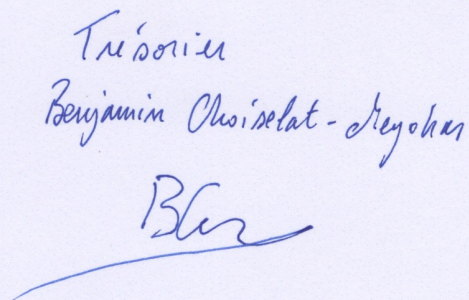 Trésorier
Benjamin Choiselat-Meyohas